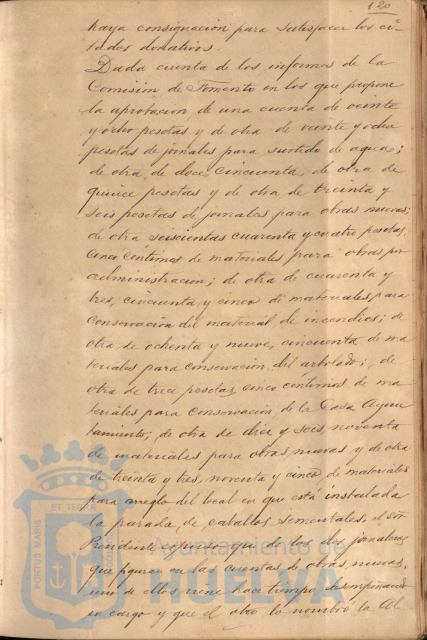 120
haya consignacion para satisfacer los ci-
tados donativos.
Dada cuenta de los informes de la
Comisión de Fomento en los que propone
la aprobacion de una cuenta de veinte
y ocho pesetas y de otra de veinte y ocho
pesetas de jornales para surtido de aguas;
de otra de doce, cincuenta, de otra de
quince pesetas y de otra de treinta y
seis pesetas de jornales para obras nuevas;
de otra seiscientas cuarenta y cuatro pesetas,
cinco céntimos de materiales para obras por
administracion; de otra de cuarenta y
tres, cincuenta y cinco de materiales para
conservacion del material de incendios; de
otra de ochenta y nueve, cincuenta de ma
teriales para conservacion del arbolado; de
otra de trece pesetas, cinco céntimos de ma
teriales para conservacion de la Casa Ayun
tamiento; de otra de diez y seis, noventa
de materiales para obras nuevas y de otra
de treinta y tres, noventa y cinco de materiales
para arreglo del local en que está instalada
la parada de caballos sementales, el Sor
Presidente expuso que de los dos jornaleros
que figuran en las cuentas de obras nuevas,
uno de ellos viene hace tiempo desempeñando
su cargo y que el otro lo nombró la Al
PORTUS MARIS ET TERRÆ
Ayuntamiento de
HUELVA